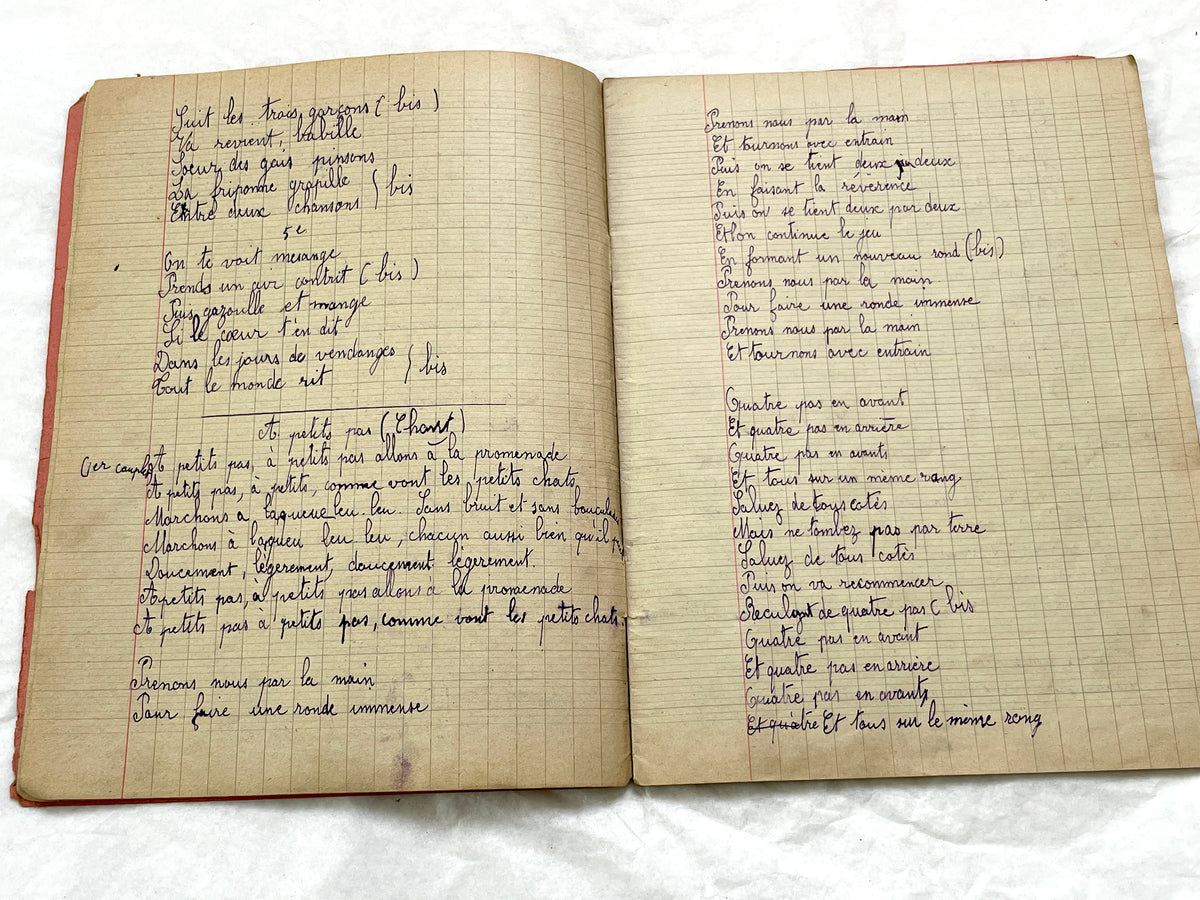 Suit les trois garçons (bis)
Va revient, babille
Soeur des gais pinsons
La friponne grapille
Entre deux chansons } bis
5e
On te voit mesange
Prends un air contrit (bis)
Puis gazouille et mange
Si le cœur t'en dit
Dans les jours de vendanges
Tout le monde rit } bis
A petits pas (Chant)
1er couplet A petits pas, à petits pas allons à la promenade
A petits pas, à petits, comme vont les petits chats,
Marchons a laqueue leu. leu. Sans bruit et sans
Marchons à laqueu leu leu, chacun aussi bien qu'il
Doucement, légerement, doucement légerement.
A petits pas, à petits pas allons à la promenade
A petits pas à petits pas, comme vont les petits chats.
Prenons nous par la main
Pour faire une ronde immense
Prenons nous par la main
Et tournons avec entrain
Puis on se tient deux deux
En faisant la révérence
Puis on se tient deux par deux
Et l'on continue le jeu
En formant un nouveau rond (bis)
Prenons nous par la main
Pour faire une ronde immense
Prenons nous par la main
Et tournons avec entrain
Quatre pas en avant
Et quatre pas en arrière
Quatre pas en avants
Et tous sur un même rang
Saluez de tous cotés
Mais ne tombez pas par terre
Saluez de tous cotés
Puis on va recommencer
Reculant de quatre pas ( bis
Quatre pas en avant
Et quatre pas en arrière
Quatre pas en avants
Et quatre Et tous sur le même rang